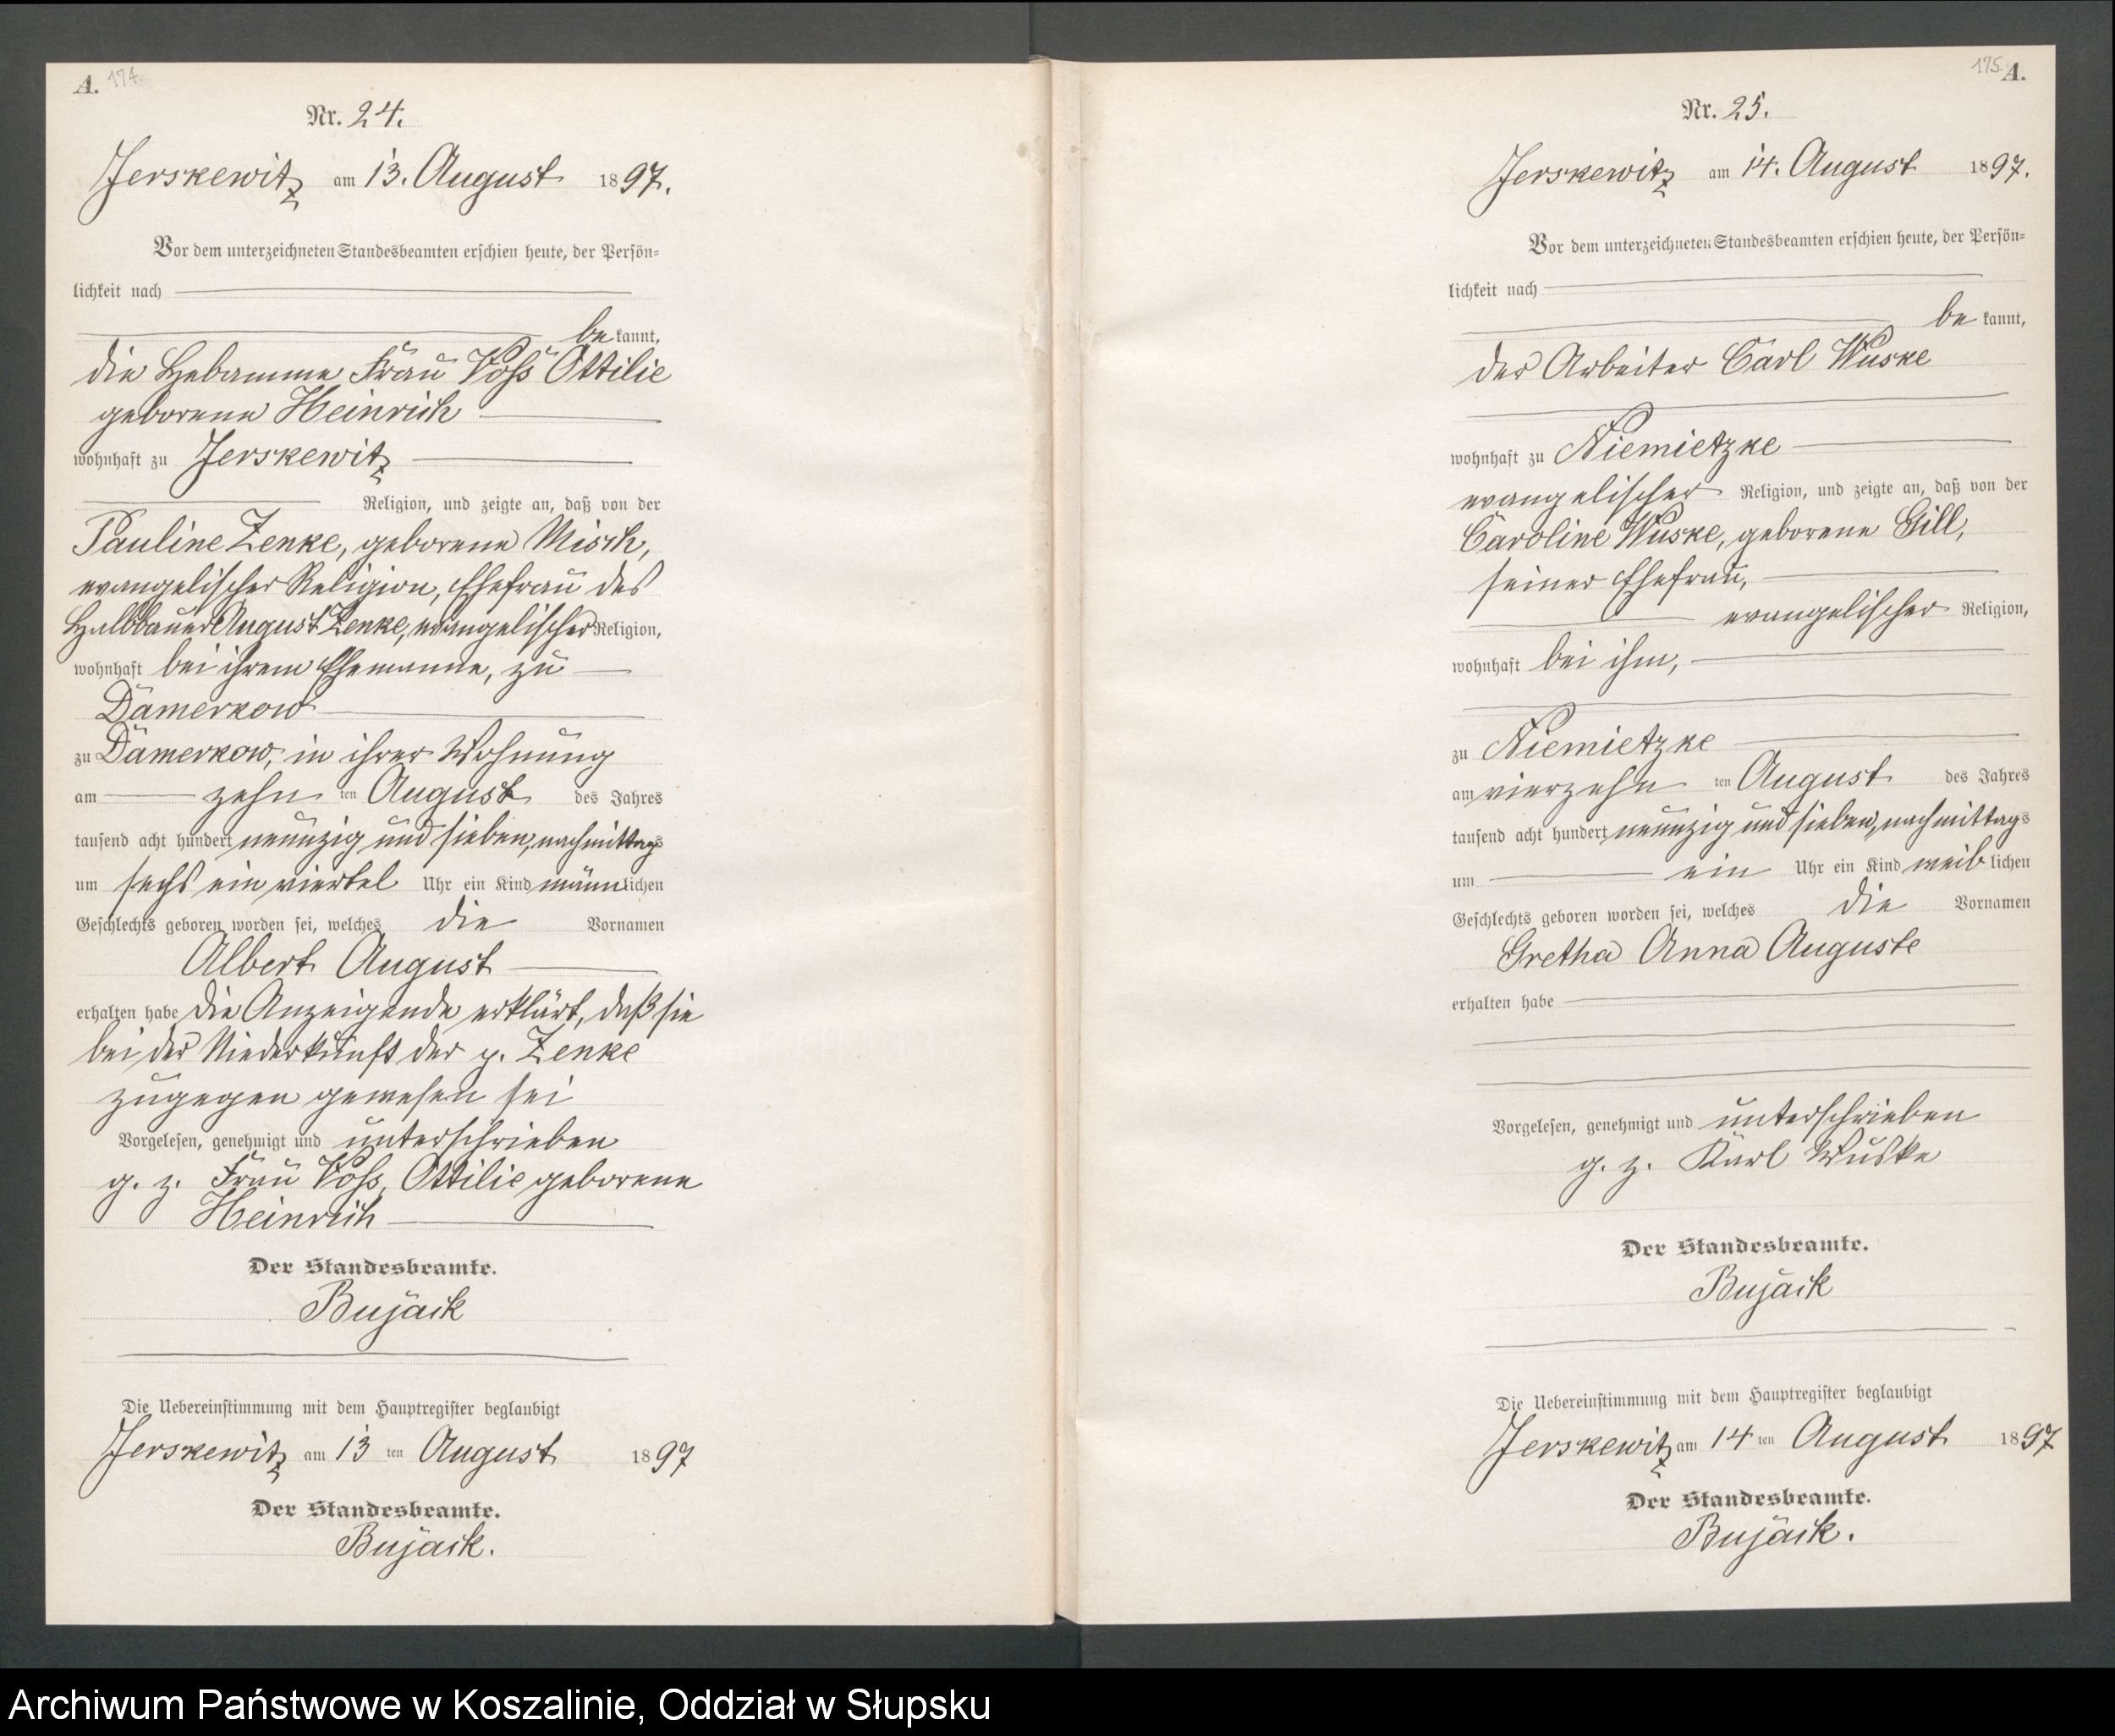 A. 174.
Nr. 24.
Jerskewitz am 13. August 1897.
Vor dem unterzeichneten Standesbeamten erschien heute, der Persön-
lichkeit nach
bekannt,
die Hebamme Frau Voß Ottilie
geborene Heinrich
wohnhaft zu Jerskewitz
Religion, und zeigte an, daß von der
Pauline Zenke, geborene Misch,
evangelischer Religion, Ehefrau des
Halbbauer August Zenke, evangelischer Religion,
wohnhaft bei ihrem Ehemanne, zu
Damerkow
zu Damerkow, in ihrer Wohnung
am zehn ten August des Jahres
tausend acht hundert neunzig und sieben, nachmittags
um sechs ein viertel Uhr ein Kind männlichen
Geschlechts geboren worden sei, welches die Vornamen
Albert August
erhalten habe die Anzeigende erklärt, daß sie
bei der Niederkunft der p. Zenke
zugegen gewesen sei
Vorgelesen, genehmigt und unterschrieben
g. z. Frau Voß, Ottilie geborene
Heinrich
Der Standesbeamte.
Bujack
Die Uebereinstimmung mit dem Hauptregister beglaubigt
Jerskewitz am 13 ten August 1897
Der Standesbeamte.
Bujack.
175. A.
Nr. 25.
Jerskewitz am 14. August 1897.
Vor dem unterzeichneten Standesbeamten erschien heute, der Persön-
lichkeit nach
bekannt,
der Arbeiter Carl Wuske
wohnhaft zu Niemietzke
evangelischer Religion, und zeigte an, daß von der
Caroline Wuske, geborene Gill,
seiner Ehefrau,
evangelischer Religion,
wohnhaft bei ihm,
zu Niemietzke
am vierzehn ten August des Jahres
tausend acht hundert neunzig und sieben, nachmittags
um ein Uhr ein Kind weiblichen
Geschlechts geboren worden sei, welches die Vornamen
Gretha Anna Auguste
erhalten habe
Vorgelesen, genehmigt und unterschrieben
g. z. Karl Wuske
Der Standesbeamte.
Bujack
Die Uebereinstimmung mit dem Hauptregister beglaubigt
Jerskewitz am 14 ten August 1897
Der Standesbeamte.
Bujack.
Archiwum Państwowe w Koszalinie, Oddział w Słupsku